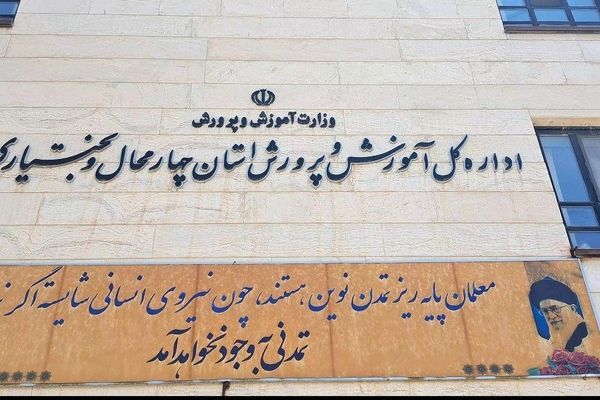 وزارت آموزش و پرورش
اداره کل آموزش و پرورش استان چهارمحال و بختیاری
معلمان پایه ریز تمدن نوین هستند، چون نیروی انسانی شایسته اگر
تمدنی به وجود نخواهد آمد